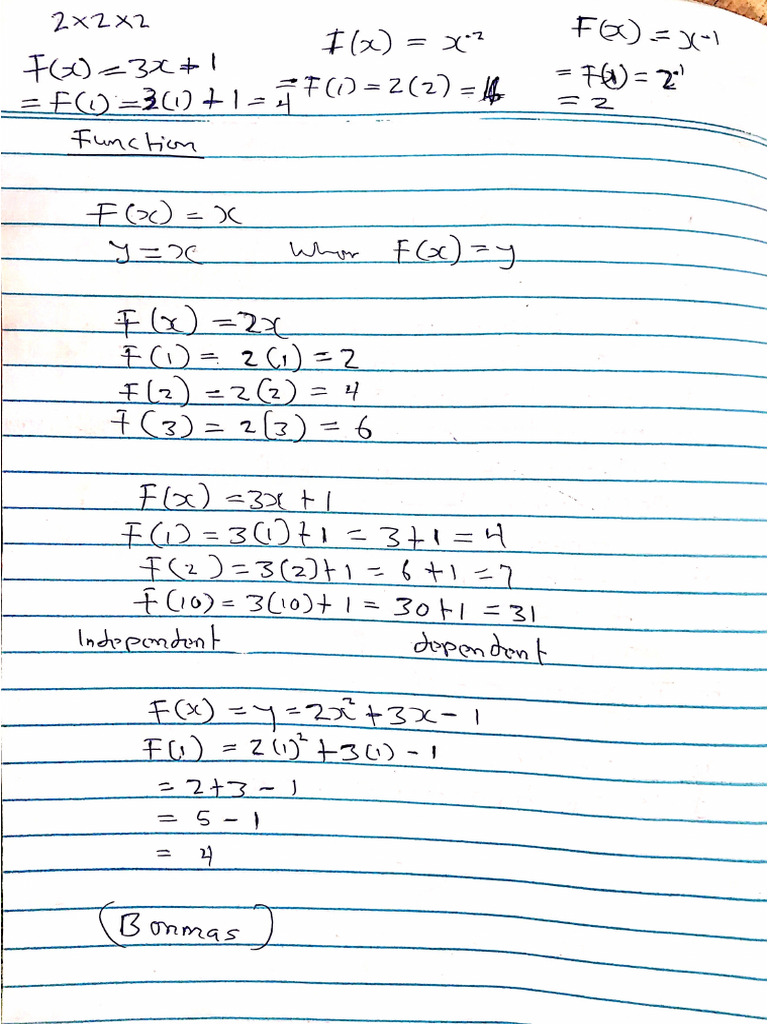 2×2×2
F(x) = 3x + 1
= F(1) = 3(1) + 1 = 4
F(x) = x⁻²
= F(1) = 2(2) =
F(x) = x⁻¹
= F(1) = 2⁻¹
= 2
Function
F(x) = x
y = x when F(x) = y
F(x) = 2x
F(1) = 2(1) = 2
F(2) = 2(2) = 4
F(3) = 2(3) = 6
F(x) = 3x + 1
F(1) = 3(1) + 1 = 3+1 = 4
F(2) = 3(2) + 1 = 6 + 1 = 7
F(10) = 3(10) + 1 = 30+1 = 31
Independent dependent
F(x) = y = 2x² + 3x - 1
F(1) = 2(1)² + 3(1) - 1
= 2+3 - 1
= 5 - 1
= 4
(Bonmas)